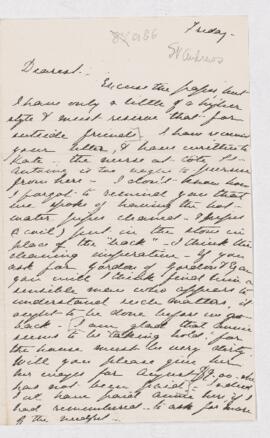 Friday -
St Andrews
Dearest :-
Excuse the paper, but
I have only a little of a higher
style & must reserve that for
outside friends. I have received
your letter, & have written to
Kate - the nurse at Côte St-
Antoine is too to
from here - I don't know how
I forgot to remind you that
we spoke of having the hot
water pipes cleaned - & pipes
(& coil) put in the stove in
place of the "back" - I think the
cleaning imperative - if you
ask for Gordon at Gordon &
you will I think find him a
sensible man who appears to
understand such matters. It
ought to be done before we go
back - I am glad that Annie
seems to be taking hold, for
the house must be very dirty.
Will you please give her
her wages for August, she
has not been paid - indeed
I'd have paid Annie here, if I
had remembered - to ask for more
of the needful -